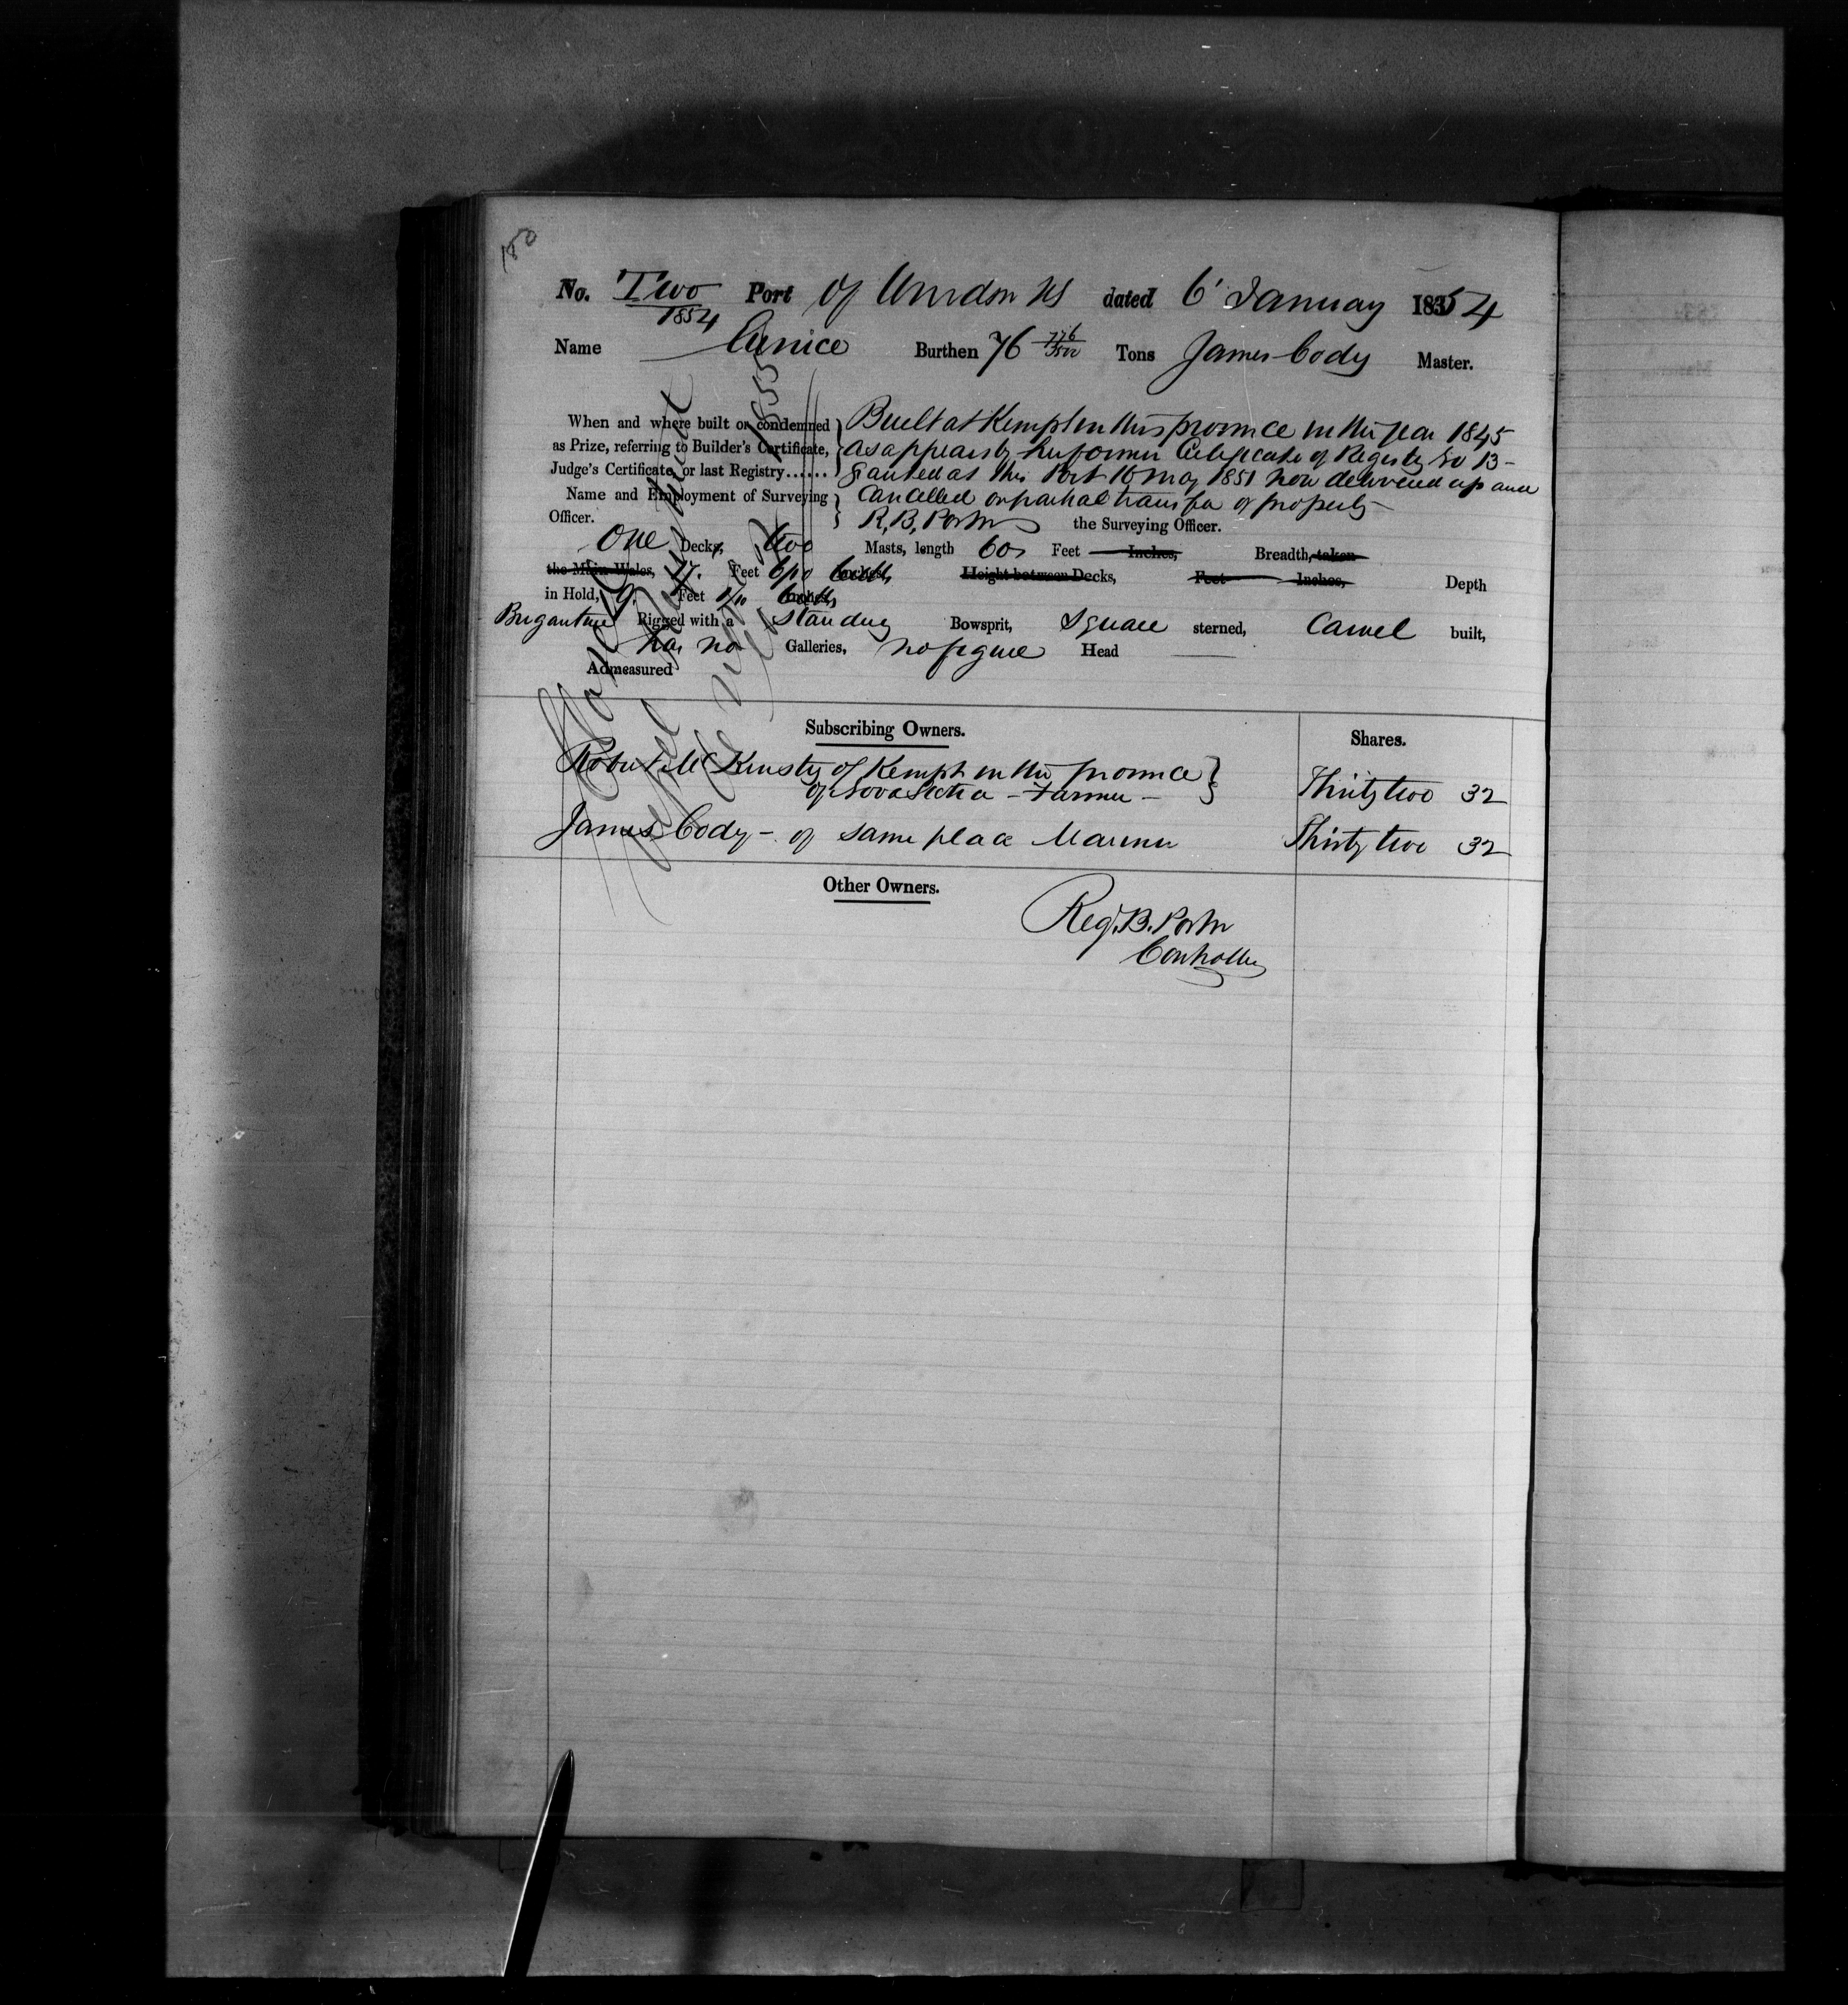 180
No. Two Port of Windsor NS dated 6' January 1854
1854
Name Eunice Burthen 76 776/3500 Tons James Cody Master.
When and where built or condemned Built at Kempt in this province in the year 1845
as Prize, referring to Builder's Certificate, as appears by her former Certificate of Registry No 13 -
Judge's Certificate, or last Registry...... Granted at this Port 16 May 1851 now delivered up and
Name and Employment of Surveying Cancelled on partial transfer of property -
Officer. R. B. Porter the Surveying Officer.
One Decks, two Masts, length 60 Feet Inches, Breadth, taken
the Main Wales, 17. Feet 6/10 Inches, Height between Decks, Feet Inches, Depth
in Hold, 9. Feet /10 Inches,
Brigantine Rigged with a Standing Bowsprit, Square sterned, Carvel built,
has no Galleries, no figure Head
Admeasured
Subscribing Owners. Shares.
Robert McKinsty of Kempt in the province
of Nova Scotia - Farmer - Thirty two 32
James Cody - of same place Mariner Thirty two 32
Other Owners.
Reg. B. Porter
Controller